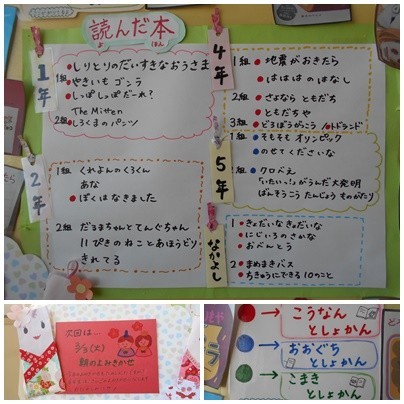 読んだ本
1年
1組
しりとりのだいすきなおうさま
やきいも ゴンラ
しっぽ しっぽ だーれ?
The Mitten
2組
しろくまのパンツ
2年
1組
くれよんのくろくん
あな
ぼくはなきました
2組
だるまちゃんとてんぐちゃん
11ぴきのねことあほうどり
きれてる
4年
1組
地震がおきたら
はははのはなし
2組
さよなら ともだち
ともだちや
3組
どろぼうがっこう
5年
1組
そもそも オリンピック
のせてくださいな
2組
クロベえ
「いたいっ!」がうんだ大発明
ばんそうこう たんじょう ものがたり
なかよし
1
きょだいな きょだいな
にじいろのさかな
おべんとう
2
まめまきバス
ちきゅうにできる10のこと
次回は…
3/3(火)
朝のよみきかせ
→ こうなん
としょかん
→ おおぐち
としょかん
→ こまき
としょかん